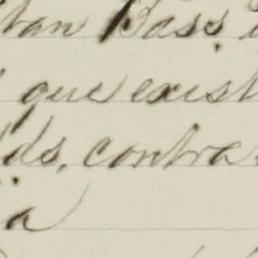 tan Bass.
que exist
ds, contra
a